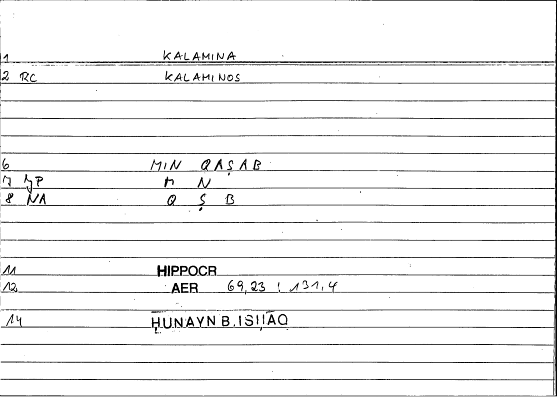 1 KALAMINA
2 RC KALAMINOS
6 MIN QAṢAB
7 JP M N
8 NA Q Ṣ B
11 HIPPOCR
12 AER 69,23 : 131,4
14 ḤUNAYN B. ISḤĀQ